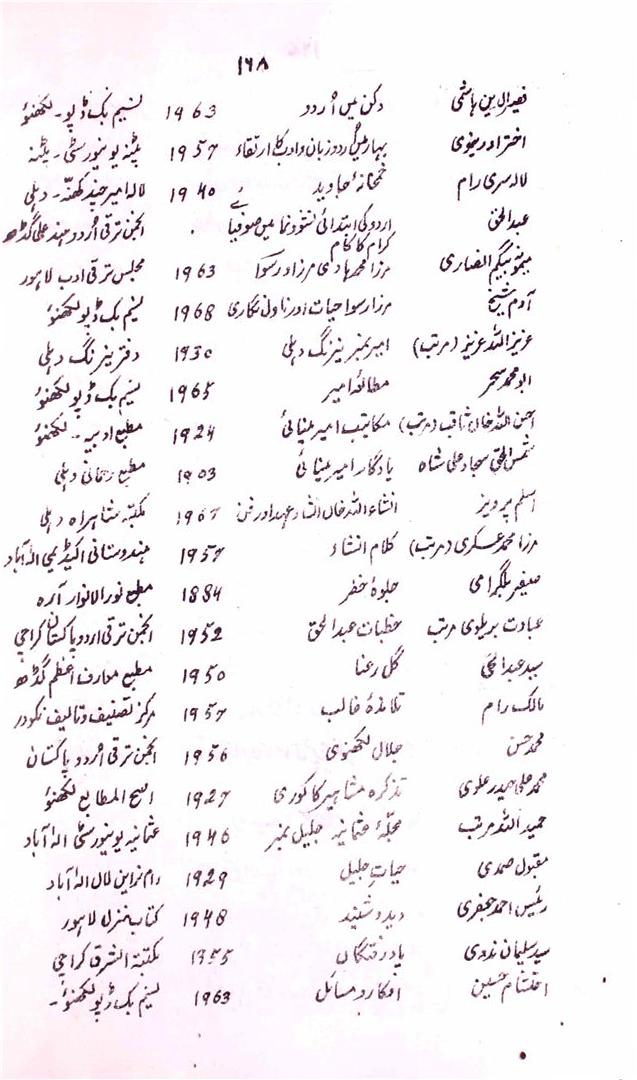 ۱۶۸
نصیرالدین ہاشمی دکن میں اُردو 1963 نسیم بک ڈپو۔ لکھنؤ
اختر اورینوی بہار میں اُردو زبان و ادب کا ارتقاء 1957 پٹنہ یونیورسٹی۔ پٹنہ
لالہ سری رام خمخانۂ جاوید 1940 لالہ امیر چند کھنّہ۔ دہلی
عبدالحق اردو کی ابتدائی نشوونما میں صوفیائے انجمن ترقی اُردو ہند علی گڈھ
کرام کا کام
میمونہ بیگم انصاری مرزا محمد ہادی مرزا و رسوا 1963 مجلس ترقی ادب لاہور
آدم شیخ مرزا رسوا حیات اور ناول نگاری 1968 نسیم بک ڈپو لکھنؤ
عزیز اللہ عزیز (مرتب) امیر نمبر نیرنگ دہلی 1930 دفتر نیرنگ دہلی
ابو محمد سحر مطالعۂ امیر 1965 نسیم بک ڈپو لکھنؤ
احسن اللہ خاں ثاقب (مرتب) مکاتیب امیر مینائی 1924 مطبع ادبیہ۔ لکھنؤ
شمس الحق سجاد علی شاہ یادگار امیر مینائی 1903 مطبع رحمانی دہلی
اسلم پرویز انشاء اللہ خاں انشاء عہد اور فن 1967 مکتبہ شاہراہ دہلی
مرزا محمد عسکری (مرتب) کلام انشاء 1957 ہندوستانی اکیڈیمی الہ آباد
صفیر بلگرامی جلوۂ خضر 1884 مطبع نورالانوار آرہ
عبادت بریلوی مرتب خطبات عبدالحق 1952 انجمن ترقی اردو پاکستان کراچی
سید عبدالحئی گل رعنا 1950 مطبع معارف اعظم گڈھ
مالک رام تلامذہ غالب 1957 مرکز تصنیف و تالیف نکودر
محمد حسن جلال لکھنوی 1956 انجمن ترقی اُردو پاکستان
محمد علی حیدر علوی تذکرہ مشاہیر کاکوری 1927 اصح المطابع لکھنؤ
حمید اللہ مرتب مجلۂ عثمانیہ جلیل نمبر 1946 عثمانیہ یونیورسٹی الہ آباد
مقبول صمدی حیات جلیل 1929 رام نراین لال الہ آباد
رئیس احمد جعفری دید و شنید 1948 کتاب منزل لاہور
سید سلیمان ندوی یاد رفتگاں 1355 مکتبۃ الشرق کراچی
احتشام حسین افکار و مسائل 1963 نسیم بک ڈپو لکھنؤ۔